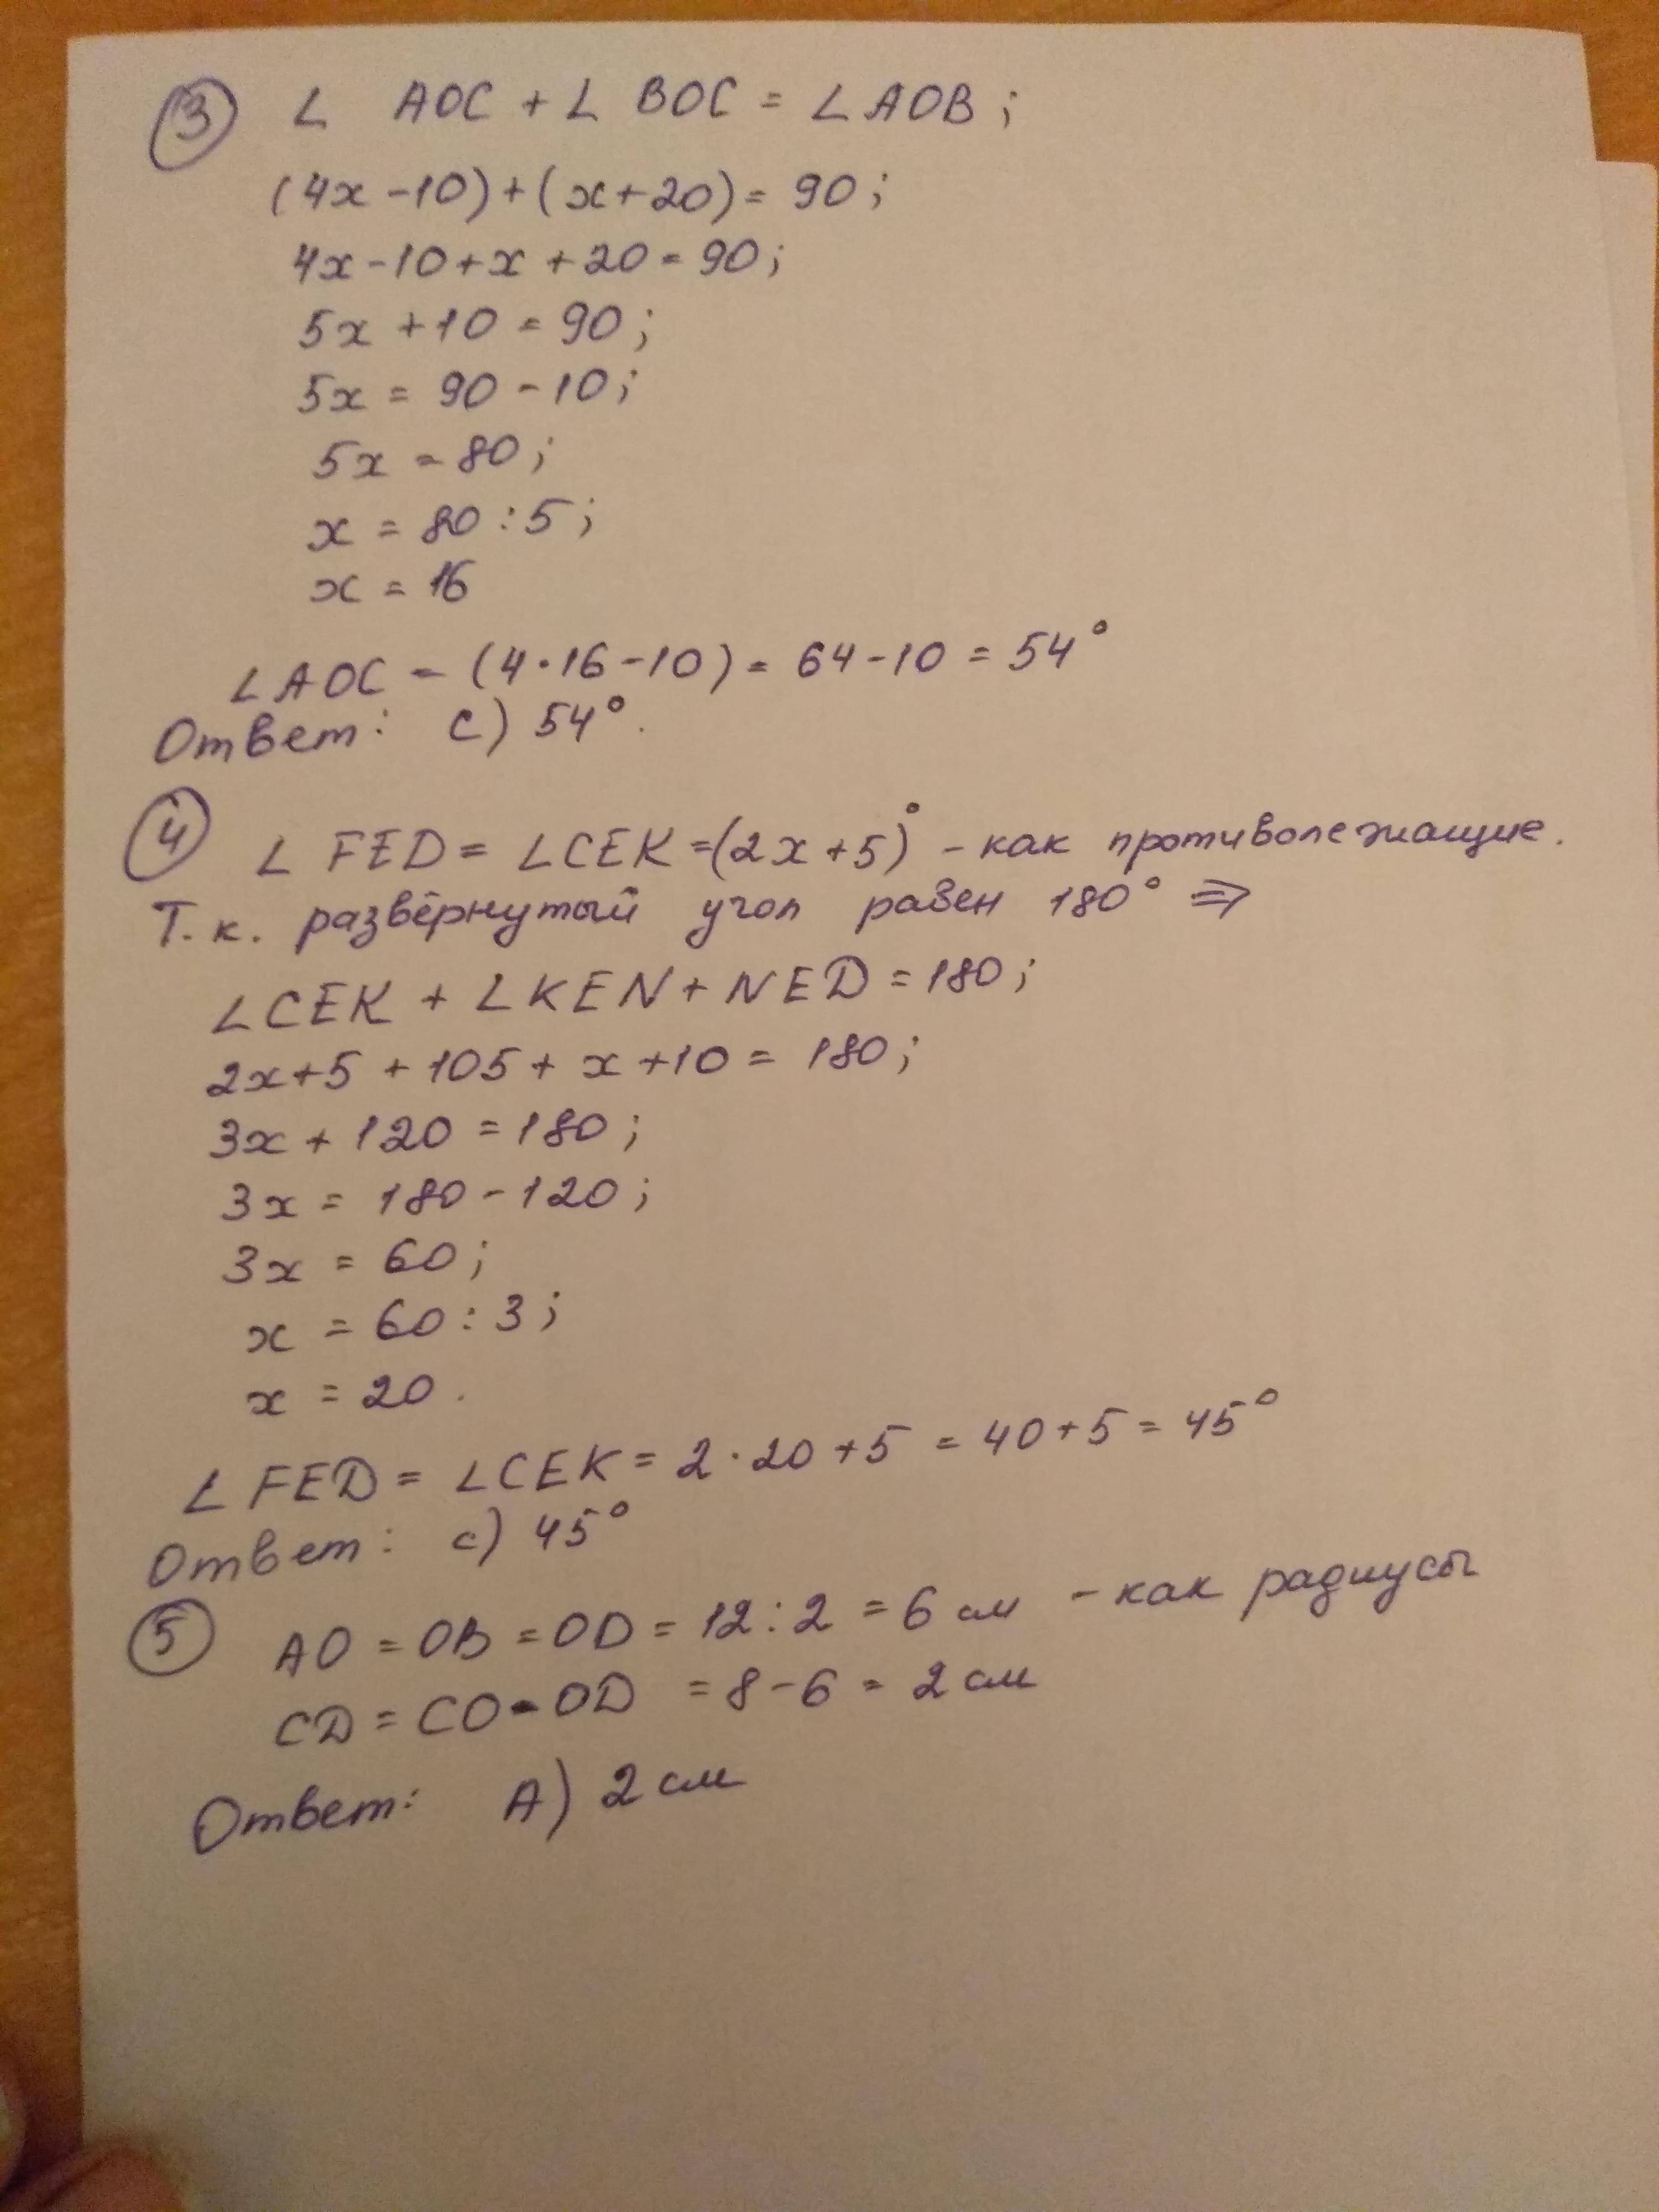 3 ∠ AOC + ∠ BOC = ∠AOB;
(4x-10)+(x+20)= 90;
4x-10+x+20=90;
5x+10=90;
5x = 90-10;
5x = 80;
x = 80:5;
x = 16
∠AOC = (4·16-10)= 64-10 = 54°
Ответ: С) 54°.
4 ∠ FED = ∠CEK =(2x+5)° - как противолежащие.
Т.к. развёрнутый угол равен 180° ⇒
∠CEK + ∠KEN + NED = 180;
2x+5 + 105 + x +10 = 180;
3x + 120 = 180;
3x = 180-120;
3x = 60;
x = 60:3;
x = 20.
∠ FED = ∠CEK = 2·20+5 = 40+5 = 45°
Ответ: с) 45°
5 AO = OB = OD = 12:2 = 6 см - как радиусы
CD = CO-OD = 8-6 = 2 см
Ответ: А) 2 см